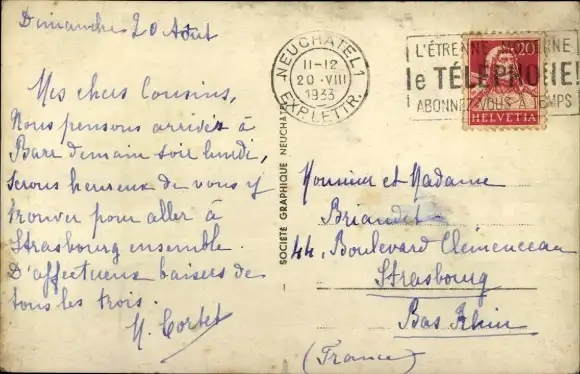 Dimanche 20 Août
Mes chers Cousins,
Nous pensons arriver à
Barr demain soir lundi,
serons heureux de vous y
trouver pour aller à
Strasbourg ensemble.
D'affectueux baisers de
tous les trois.
M. Cortet
NEUCHATEL 1
11-12
20·VIII
1933
EXP. LETTR.
L'ÉTRENNE MODERNE
le TÉLÉPHONE!
ABONNEZ-VOUS À TEMPS
20
HELVETIA
SOCIÉTÉ GRAPHIQUE NEUCHATEL
Monsieur et Madame
Briandet
44, Boulevard Clémenceau
Strasbourg
Bas Rhin
(France)